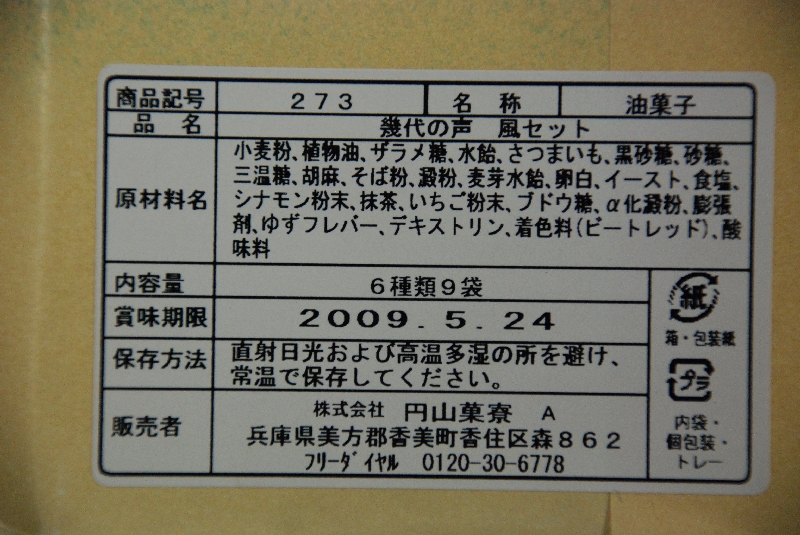 商品記号 273 名 称 油菓子
品 名 幾代の声 風セット
原材料名 小麦粉、植物油、ザラメ糖、水飴、さつまいも、黒砂糖、砂糖、
三温糖、胡麻、そば粉、澱粉、麦芽水飴、卵白、イースト、食塩、
シナモン粉末、抹茶、いちご粉末、ブドウ糖、α化澱粉、膨張
剤、ゆずフレバー、デキストリン、着色料(ビートレッド)、酸
味料
内容量 6種類9袋
賞味期限 2009.5.24
保存方法 直射日光および高温多湿の所を避け、
常温で保存してください。
販売者 株式会社 円山菓寮 A
兵庫県美方郡香美町香住区森862
フリーダイヤル 0120-30-6778
紙
箱・包装紙
プラ
内袋・
個包装・
トレー